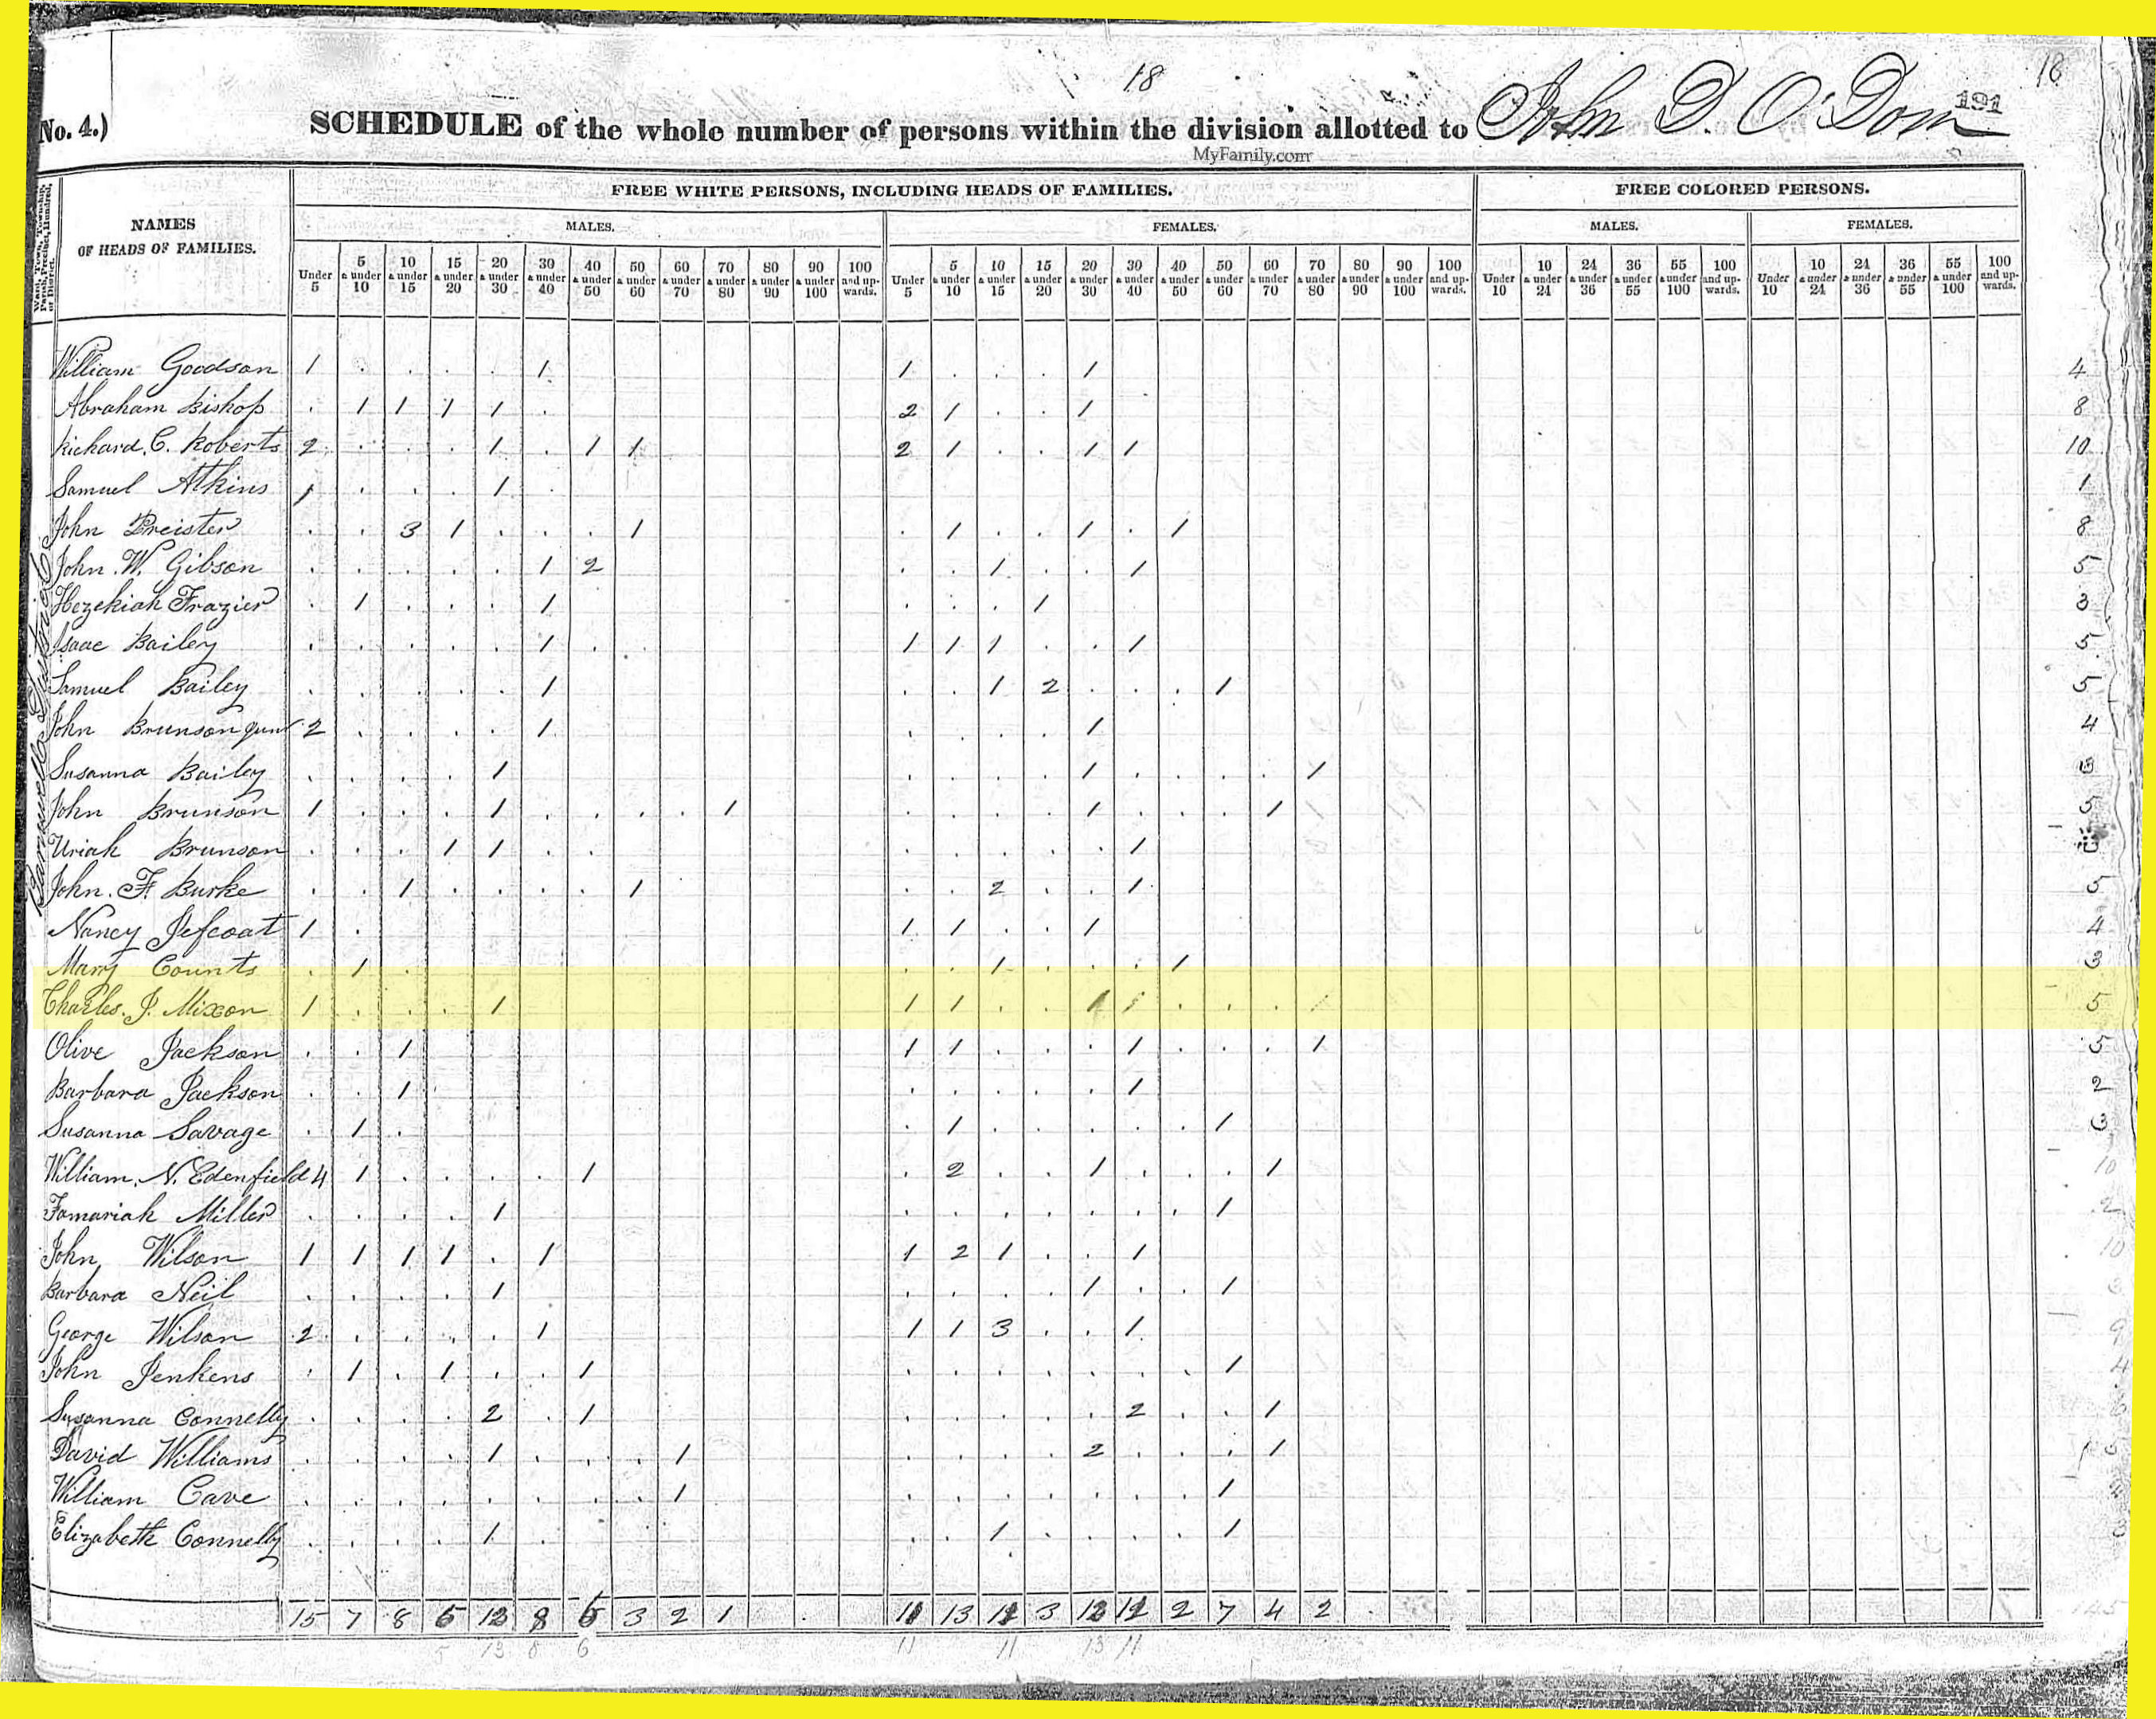 18
18
No. 4.)
SCHEDULE of the whole number of persons within the division allotted to John D. O'Dom
191
MyFamily.com
Ward, Town, Township, Parish, Precinct, Hundred, or District.
NAMES OF HEADS OF FAMILIES.
FREE WHITE PERSONS, INCLUDING HEADS OF FAMILIES.
FREE COLORED PERSONS.
MALES. FEMALES. MALES. FEMALES.
Under 5 5 & under 10 10 & under 15 15 & under 20 20 & under 30 30 & under 40 40 & under 50 50 & under 60 60 & under 70 70 & under 80 80 & under 90 90 & under 100 100 and upwards. Under 5 5 & under 10 10 & under 15 15 & under 20 20 & under 30 30 & under 40 40 & under 50 50 & under 60 60 & under 70 70 & under 80 80 & under 90 90 & under 100 100 and upwards. Under 10 10 & under 24 24 & under 36 36 & under 55 55 & under 100 100 and upwards. Under 10 10 & under 24 24 & under 36 36 & under 55 55 & under 100 100 and upwards.
Barnwell District
William Goodson 1 . . . . 1 1 . . . 1 4
Abraham Bishop . 1 1 1 1 . 2 1 . . 1 8
Richard C. Roberts 2 . . . 1 . 1 1 2 1 . . 1 1 10
Samuel Atkins 1 . . . 1 . 1
John Preister . . 3 1 . . . 1 . 1 . . 1 . 1 8
John W. Gibson . . . . . 1 2 . . 1 . . 1 5
Hezekiah Frazier . 1 . . . 1 . . . 1 3
Isaac Bailey . . . . . 1 . . 1 1 1 . . 1 5
Samuel Bailey . . . . . 1 . . 1 2 . . . 1 5
John Brunson Jun 2 . . . . 1 . . . . 1 4
Susanna Bailey . . . . 1 . . . . 1 . . . . 1 3
John Brunson 1 . . . 1 . . . . 1 . . . . 1 . . . 1 5
Uriah Brunson . . . 1 1 . . . . . . . 1 3
John F. Burke . . 1 . . . . 1 . . 2 . . 1 5
Nancy Jefcoat 1 . 1 1 . . 1 4
Mary Counts . 1 . . . 1 . . . 1 3
Charles J. Mixon 1 . . . 1 1 1 . . 1 . . . 5
Olive Jackson . . 1 1 1 . . . 1 . . . 1 5
Barbara Jackson . . 1 . . . . . 1 2
Susanna Savage . 1 . . 1 . . . . . 1 3
William N. Edenfield 4 1 . . . . 1 . 2 . . 1 . . . 1 10
Tamariah Miller . . . . 1 . . . . . . . 1 2
John Wilson 1 1 1 1 . 1 1 2 1 . . 1 10
Barbara Neil . . . . 1 . . . . 1 . . 1 3
George Wilson 2 . . . . 1 1 1 3 . . 1 9
John Jenkens . 1 . 1 . . 1 . . . . . . . 1 4
Susanna Connelly . . . . 2 . 1 . . . . . 2 . . 1 6
David Williams . . . . 1 . . . 1 . . . . 2 . . . 1
William Cave . . . . . . . . 1 . . . . . . . 1
Elizabeth Connelly . . . . 1 . . . 1 . . . . 1 3
15 7 8 5 13 8 6 3 2 1 11 13 11 3 13 11 2 7 4 2 145
5 13 8 6 11 11 13 11